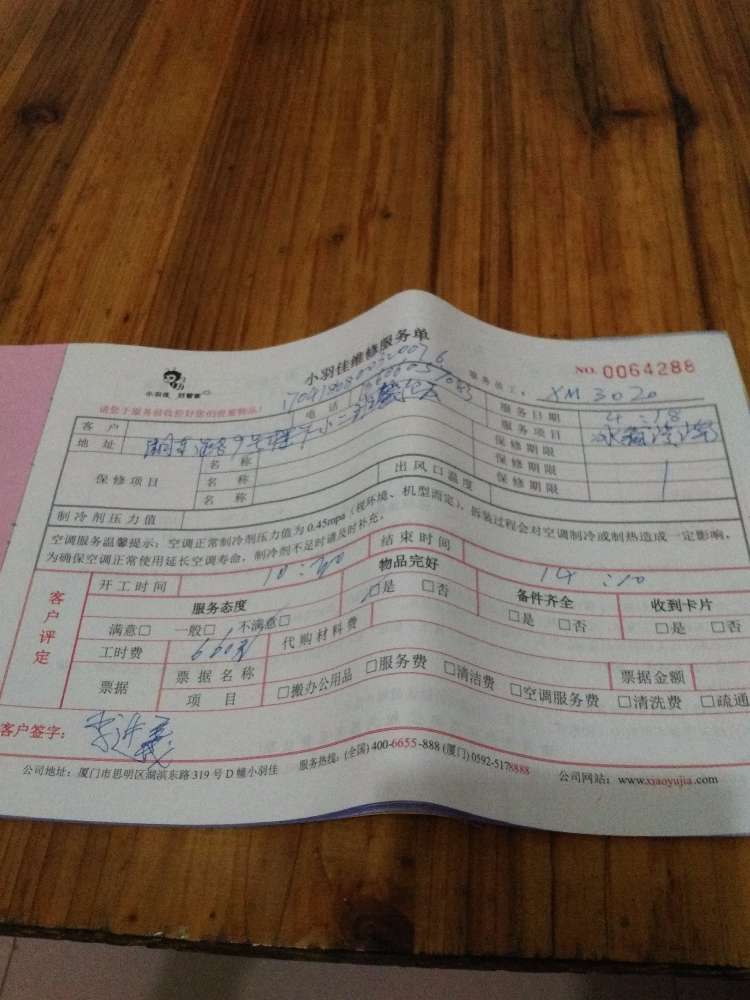 小羽佳维修服务单
NO. 0064288
小羽佳 刘管家
请您于服务前收检好您的贵重物品!
服务员工: XM 3020
客户 电话 服务日期 4.18
地址 服务项目
保修项目 名称 保修期限
名称 保修期限
名称 保修期限
制冷剂压力值 出风口温度
空调服务温馨提示: 空调正常制冷剂压力值为 0.45mpa (视环境、机型而定), 拆装过程会对空调制冷或制热造成一定影响,
为确保空调正常使用延长空调寿命, 制冷剂不足时请及时补充。
客户评定
开工时间 10:30 结束时间 14:10
服务态度 物品完好 备件齐全 收到卡片
满意□ 一般□ 不满意□ □是 □否 □是 □否 □是 □否
工时费 660元 代购材料费
票据 票据名称 票据金额
项目 □搬办公用品 □服务费 □清洁费 □空调服务费 □清洗费 □疏通
客户签字:
公司地址: 厦门市思明区湖滨东路 319 号 D 幢小羽佳 服务热线: (全国) 400-6655-888 (厦门) 0592-5178888 公司网站: www.xiaoyujia.com